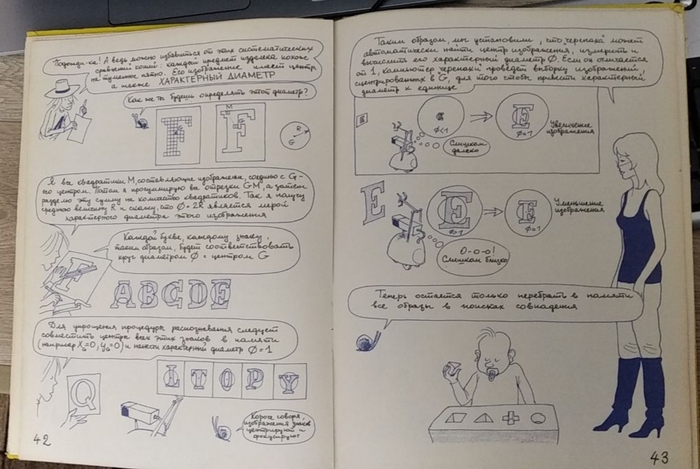 Подожди-ка! А ведь можно избавиться от этих систематических
сравнений копий: каждый предмет издалека похож
на туманное пятно. Его изображение имеет центр,
а также ХАРАКТЕРНЫЙ ДИАМЕТР
Как же ты будешь определять этот диаметр?
M
R
G
Я все квадратики M, составляющие изображение, соединю с G -
его центром. Потом я просуммирую все отрезки GM, а затем
разделю эту сумму на количество квадратиков. Так я получу
среднюю величину R и скажу, что Ø = 2R является мерой
характерного диаметра этого изображения
Каждой букве, каждому знаку,
таким образом, будет соответствовать
круг диаметром Ø с центром G
F
A B C D E
Для упрощения процедуры распознавания следует
совместить центры всех этих знаков в памяти
(например X=0, y=0) и нанести характерный диаметр Ø=1
Q
L T O P Y
Короче говоря,
изображения знаков
центрируют и
фокусируют
42
Таким образом, мы установили, что черепаха может
автоматически найти центр изображения, измерить и
вычислить его характерный диаметр Ø. Если он отличается
от 1, компьютер черепахи проведет выборку изображений,
центрированных в G, для того чтобы привести характерный
диаметр к единице
E
Ø<1
E
Ø=1
Увеличение
изображения
Слишком
далеко
E
E
Ø>1
E
Ø=1
Уменьшение
изображения
О-о-о!
Слишком близко
Теперь остается только перебрать в памяти
все образы в поисках совпадения
43